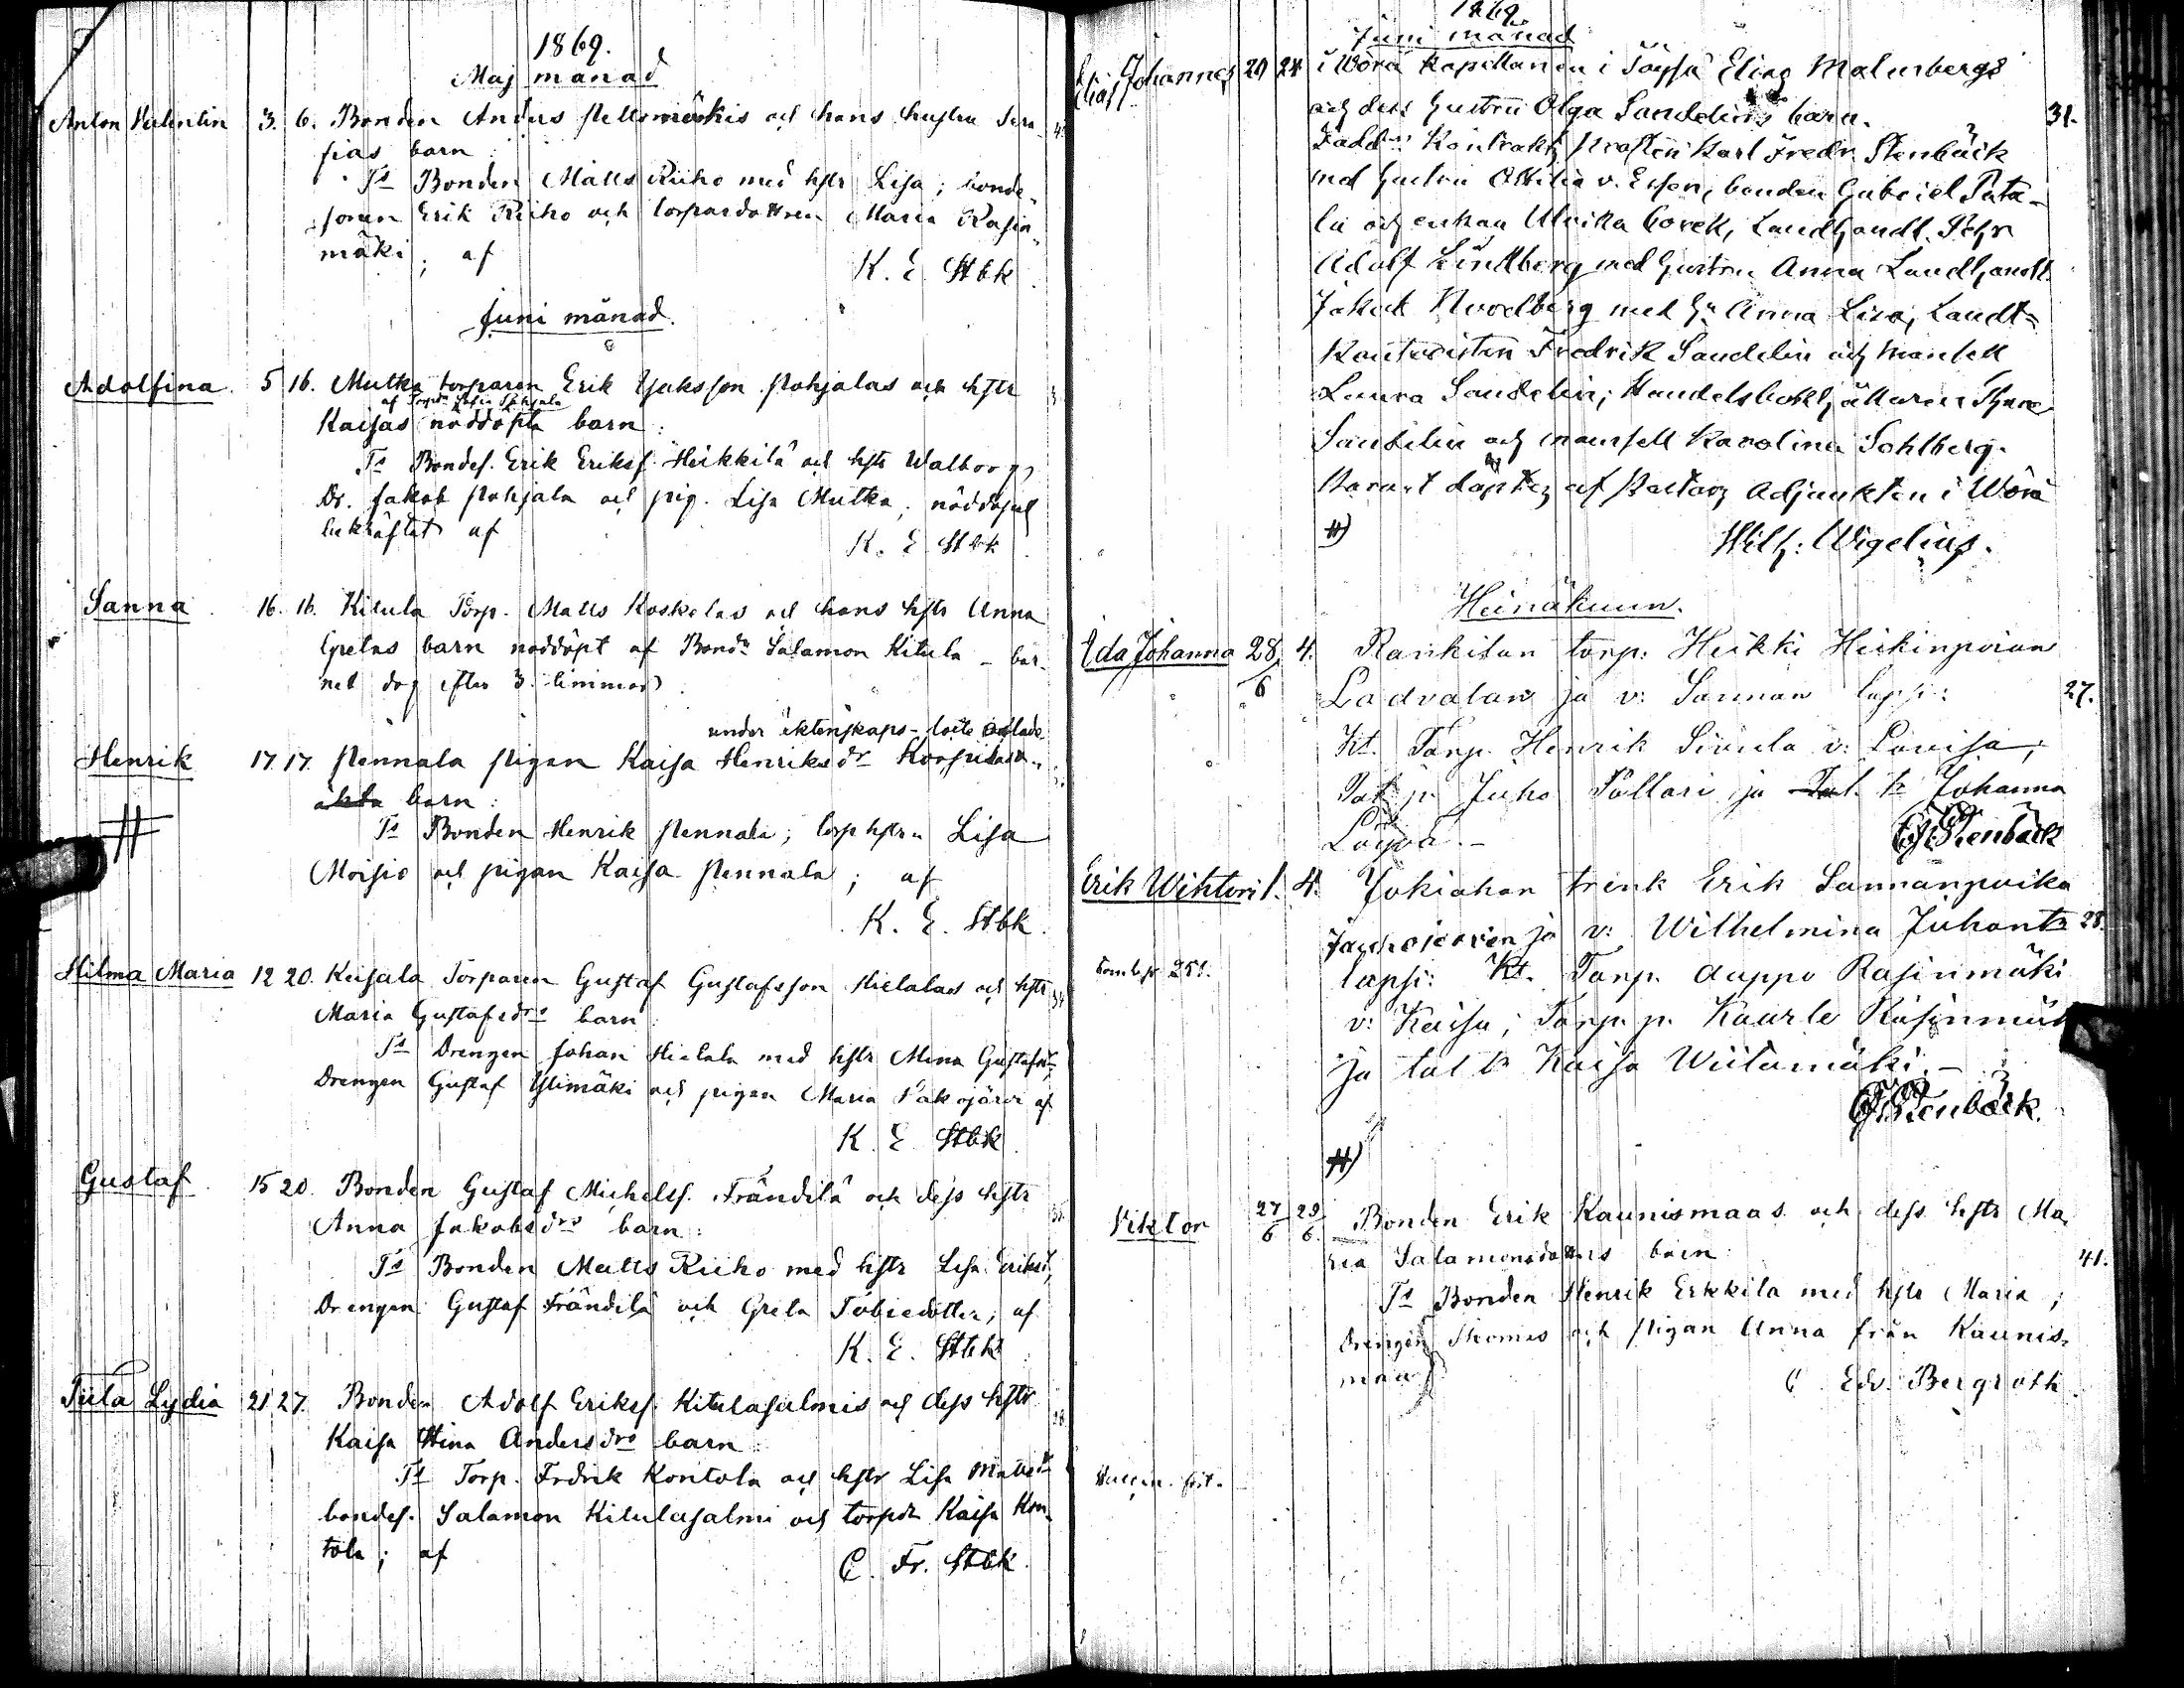 1869.
Maj månad
Anton Valentin 3. 6. Bonden Anders Peltomäkis och hans hustru Sera-
fias barn
Ts Bonden Matts Riiho med hstr Lisa; bonde-
sonen Erik Riiho och torpardottren Maria Rasin-
mäki; af
K. E. Stbk
Juni månad.
Adolfina. 5 16. Mutka torparen Erik Jakssson Pohjalas och hstr
af Torpdr Sofia Pohjala
Kaisas nöddöpta barn:
Ts Bondes. Erik Eriksf. Heikkilä och hstr Walborg,
Dr. Jakob Pohjala och pig. Lisa Mutka; nöddopet
bekräftat af
K. E. Stbk
Sanna 16. 16. Kitula Torp. Matts Koskelas och hans hstr Anna
Gretas barn nöddöpt af Bondn Salamon Kitula – bar-
net dog efter 3 timmar
under äktenskaps-löfte aflade
Henrik 17. 17. Pennala Pigan Kaisa Henriksdr
äkta barn:
Ts Bonden Henrik Pennala; torp hstrn Lisa
Moisio och pigan Kaisa Pennala; af
K. E. Stbk.
Hilma Maria 12 20. Keisala Torparen Gustaf Gustafsson Hietalas och hstr
Maria Gustafsdrs barn:
Ts Drengen Johan Hietala med hstr Mina Gustafsdr,
Drengen Gustaf Ylimäki och pigan Maria af
K. E. Stbk
Gustaf 15 20. Bonden Gustaf Michelsf. Frändilä och dess hstr
Anna Jakobsdrs barn:
Ts Bonden Matts Riiho med hstr Lisa Eriksd,
Drengen Gustaf Frändilä och Greta Tobiedotter; af
K. E. Stbk
Tiila Lydia 21 27. Bonden Adolf Eriksf. Kitulasalmis och dess hstr
Kaisa Stina Andersdrs barn:
Ts Torp. Fredrik Kontola och hstr Lisa Mattsdr
bondes. Salamon Kitulasalmi och torpdr Kaisa Kon-
tola; af
C. Fr. Stbk.
1869.
Juni månad
Elias Johannes 20 24 i Wörå Kapellanen i Töysä Elias Malmbergs
och dess hustru Olga Sandelins barn. 31.
Fadd: Kontrakts Prosten Karl Fredr. Stenbäck
med hustru Ottilia v. Essen, bonden Gabriel Pata-
la och enkan Ulrika Corell, Landthandl. Pehr
Adolf Lindtberg med hustru Anna Landthandl.
Jakob Nordberg med h: Anna Lisa; Landt-
Kontoristen Fredrik Sandelin och mamsell
Laura Sandelin; Handelsbokhållaren Thure
Sandelin och mamsell Karolina Sohlberg.
Barnet döptes af Pastors Adjunkten i Wörå
#) Wilh: Wigelius.
Heinäkuun.
Ida Johanna 28/6 4. Rankilan torp: Heikki Heikinpoian
Ladvalan ja v: Sannan lapsi: 27.
Kt. Torp. Henrik Sivula v: Lovisa;
Tal. p. Juho Pollari ja Tal. tr Johanna
Löyvä.–
C F Stenbäck
Erik Wihtori 1. 4. Jokiahon trenk Erik Sannanpoika
ja v: Wilhelmina Juhontr 28.
lapsi: Kt. Torp. Auppo Rasinmäki
v: Kaisa; Torp. p. Kaarle Rasinmäki
ja tal tr Kaisa Wiitamäki.–
C F Stenbäck.
#)
Viktor 27/6 29/6. Bonden Erik Kaunismaas och dess hstr Ma-
ria Salamonsdotters barn: 41.
Ts Bonden Henrik Erkkilä med hstr Maria;
Drengen Thomas och Pigan Anna från Kaunis-
maa
C. Edv. Bergroth.